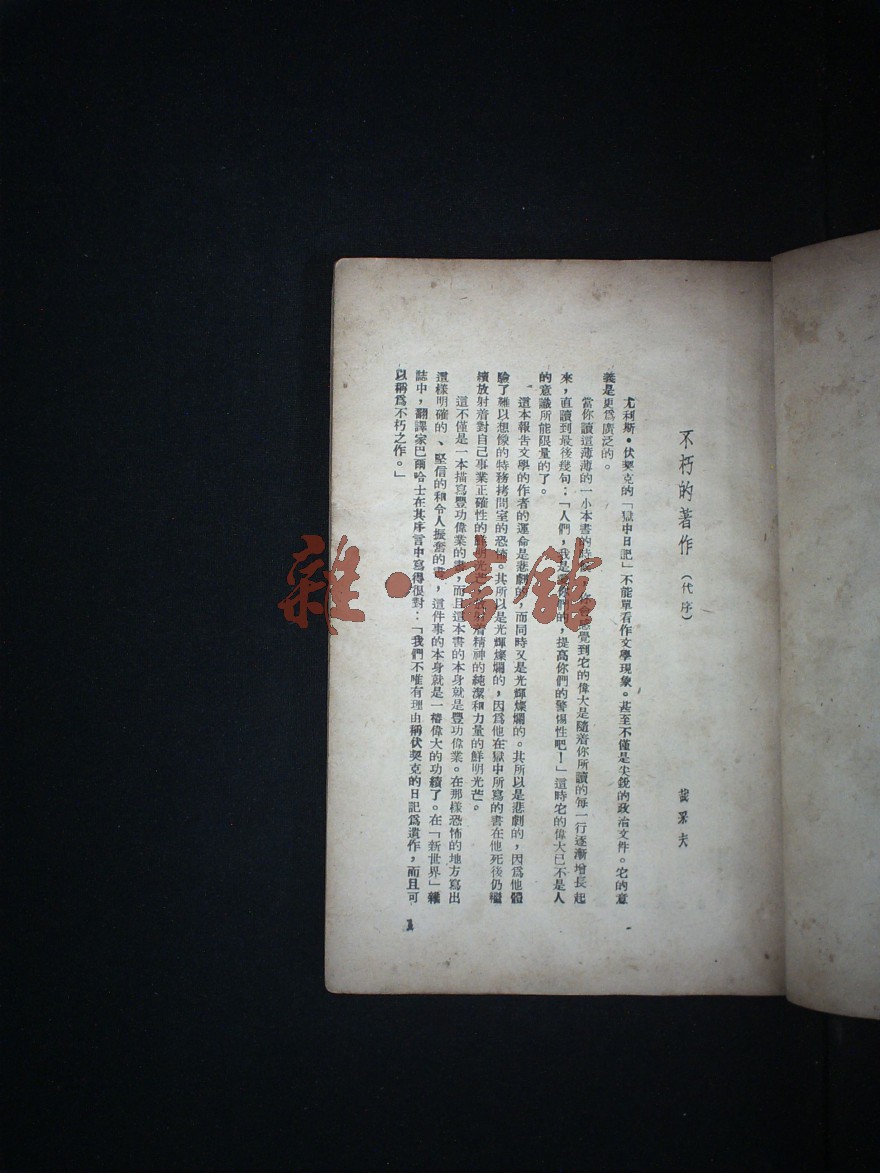 不朽的著作（代序）
尤利斯·伏契克的「獄中日記」不能單看作文學現象。甚至不僅是尖銳的政治文件。它的意
義是更爲廣泛的。
當你讀這薄薄的一小本書的時候，你會感覺到它的偉大是隨着你所讀的每一行逐漸增長起
來，直讀到最後幾句：「人們，我是愛你們的，提高你們的警惕性吧！」這時它的偉大已不是人
的意識所能限量的了。
這本報告文學的作者的運命是悲劇的，而同時又是光輝燦爛的。其所以是悲劇的，因爲他體
驗了難以想像的特務拷問室的恐怖。其所以是光輝燦爛的，因爲他在獄中所寫的書在他死後仍繼
續放射着對自己事業正確性的鮮明光芒，放射着精神的純潔和力量的鮮明光芒。
這不僅是一本描寫豐功偉業的書，而且這本書的本身就是豐功偉業。在那樣恐怖的地方寫出
這樣明確的、堅信的和令人振奮的書，這件事的本身就是一樁偉大的功績了。在「新世界」雜
誌中，翻譯家巴爾哈士在其序言中寫得很對：「我們不唯有理由稱伏契克的日記爲遺作，而且可
以稱爲不朽之作。」
1
雜·書館